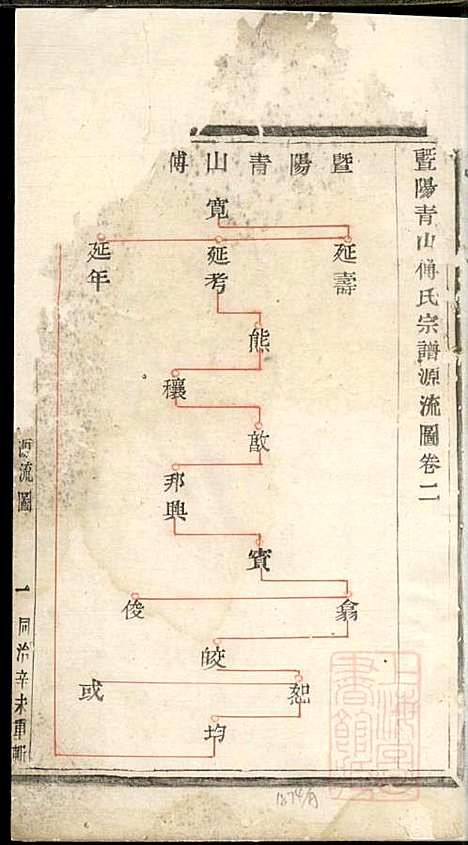 暨陽青山傅氏宗譜源流圖卷二
暨陽青山傅
寬
延壽
延考
延年
熊
穰
敔
邦興
賓
翕
俊
皎
恕
或
均
源流圖
一
同治辛未重